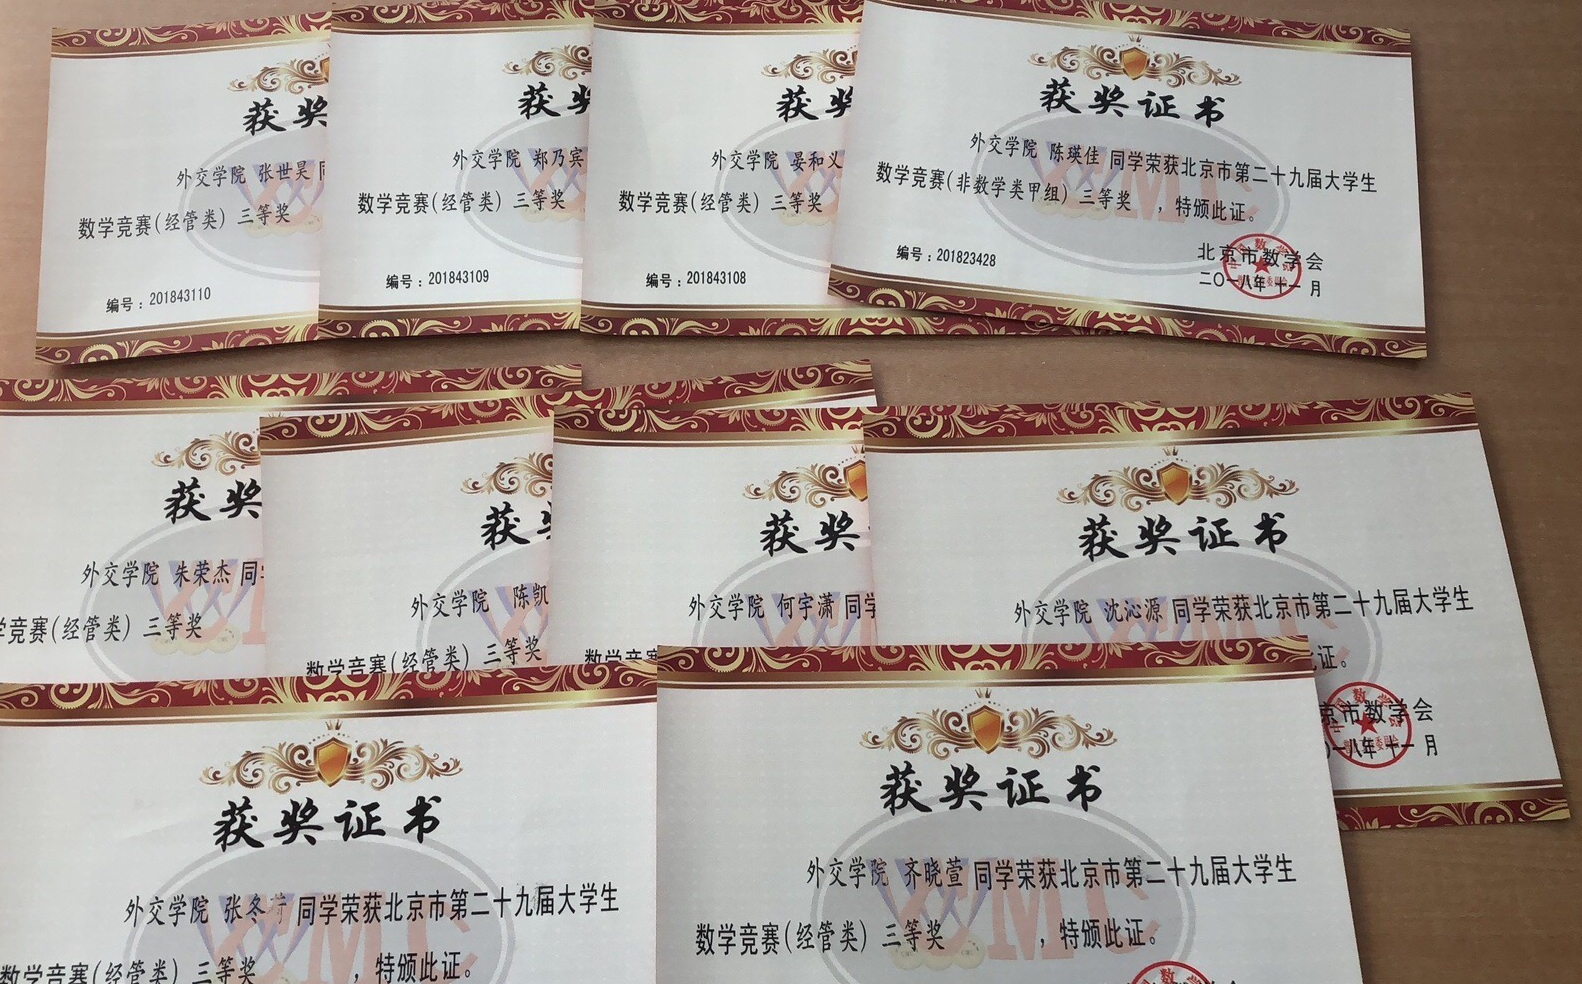 获奖
外交学院 张世昊
数学竞赛(经管类) 三等奖
编号：201843110
获奖
外交学院 郑乃宾
数学竞赛(经管类) 三等奖
编号：201843109
获奖
外交学院 晏和义
数学竞赛(经管类) 三等奖
编号：201843108
获奖证书
外交学院 陈瑛佳 同学荣获北京市第二十九届大学生
数学竞赛(非数学类甲组) 三等奖 ，特颁此证。
编号：201823428
北京市数学会
二〇一八年十一月
获奖
外交学院 朱荣杰 同
学竞赛(经管类) 三等奖
获
外交学院 陈凯
数学竞赛(经管类) 三等奖
获奖
外交学院 何宇潇 同学
数学竞
获奖证书
外交学院 沈沁源 同学荣获北京市第二十九届大学生
此证。
京市数学会
一八年十一月
获奖证书
外交学院 张冬 同学荣获北京市第二十九届大学生
数学竞赛(经管类) 三等奖 ，特颁此证。
获奖证书
外交学院 齐晓萱 同学荣获北京市第二十九届大学生
数学竞赛(经管类) 三等奖 ，特颁此证。